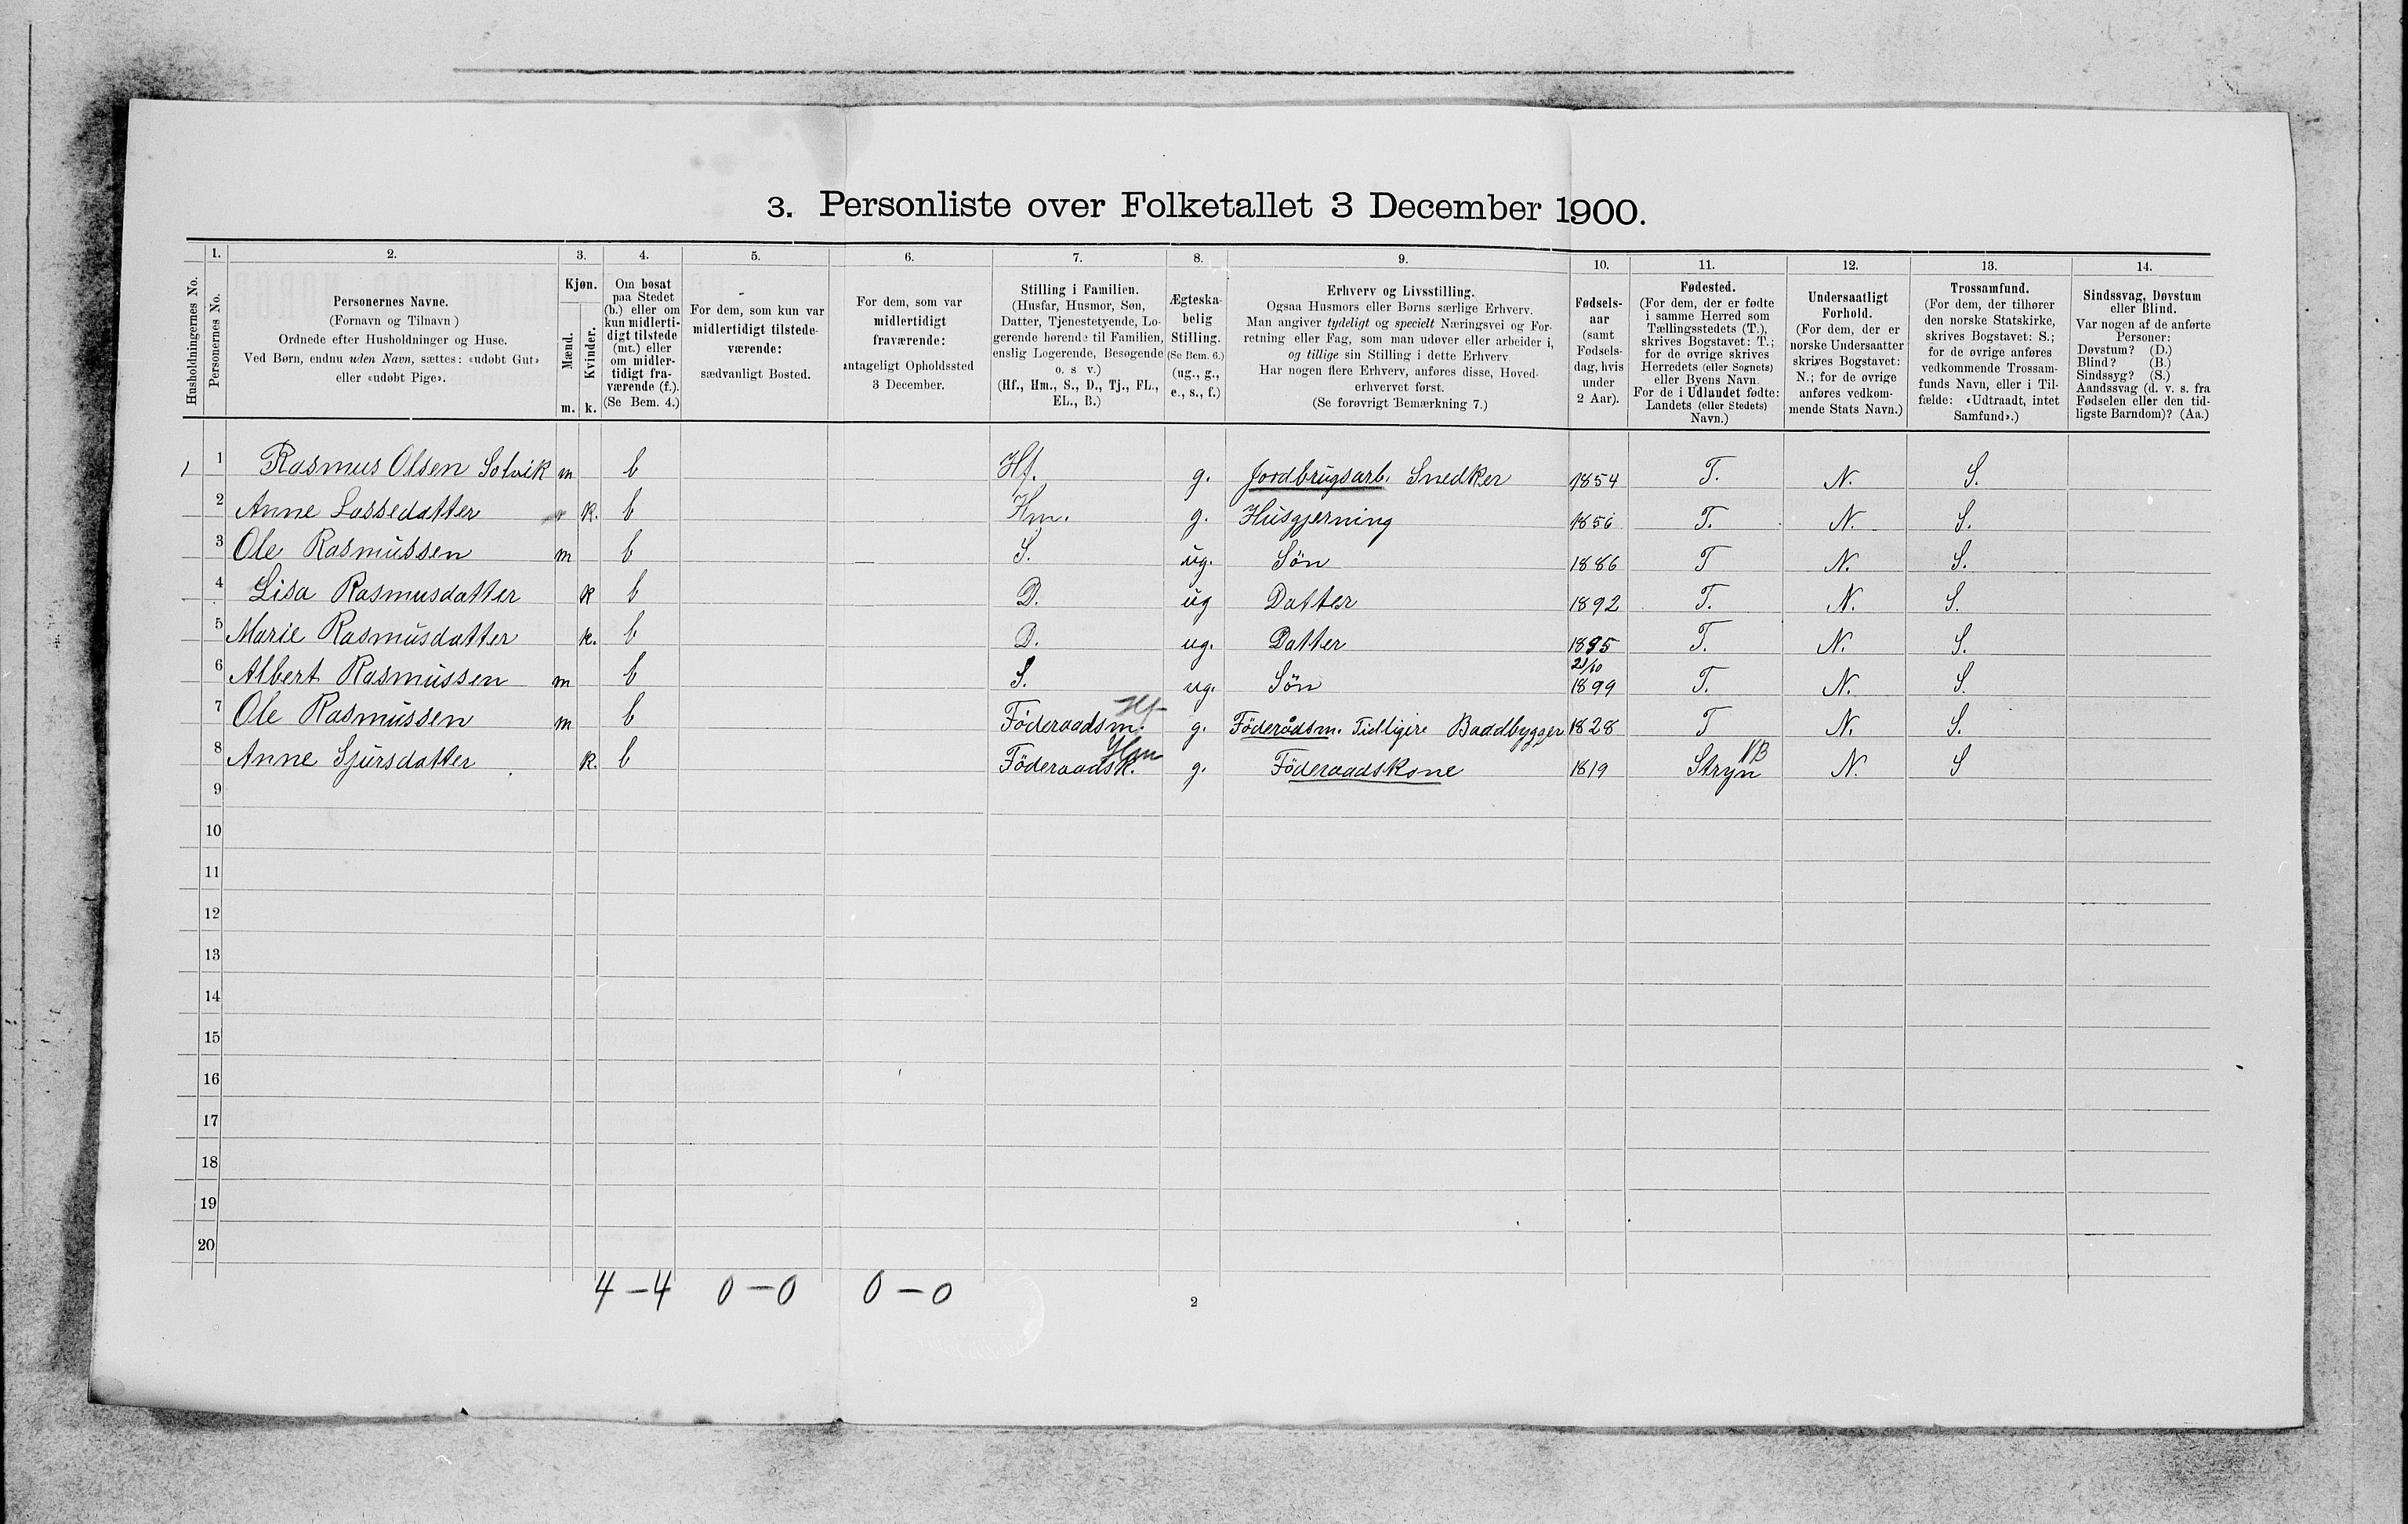 3. Personliste over Folketallet 3 December 1900.
1. 2. 3. 4. 5. 6. 7. 8. 9. 10. 11. 12. 13. 14.
Husholdningernes No.
Personernes No.
Personernes Navne.
(Fornavn og Tilnavn )
Ordnede efter Husholdninger og Huse.
Ved Børn, endnu uden Navn, sættes: «udøbt Gut»
eller «udøbt Pige».
Kjøn.
Mænd.
Kvinder.
m. k.
Om bosat
paa Stedet
(b.) eller om
kun midlerti-
digt tilstede
(mt.) eller
om midler-
tidigt fra-
værende (f.).
(Se Bem. 4.)
For dem, som kun var
midlertidigt tilstede-
værende:
sædvanligt Bosted.
For dem, som var
midlertidigt
fraværende:
antageligt Opholdssted
3 December.
Stilling i Familien.
(Husfar, Husmor, Søn,
Datter, Tjenestetyende, Lo-
gerende hørende til Familien,
enslig Logerende, Besøgende
o. s v.)
(Hf., Hm., S., D., Tj., FL.,
EL., B.)
Ægteska-
belig
Stilling.
(Se Bem. 6.)
(ug., g.,
e., s., f.)
Erhverv og Livsstilling.
Ogsaa Husmors eller Børns særlige Erhverv.
Man angiver tydeligt og specielt Næringsvei og For-
retning eller Fag, som man udøver eller arbeider i,
og tillige sin Stilling i dette Erhverv.
Har nogen flere Erhverv, anføres disse, Hoved-
erhvervet først.
(Se forøvrigt Bemærkning 7.)
Fødsels-
aar
(samt
Fødsels-
dag, hvis
under
2 Aar).
Fødested.
(For dem, der er fødte
i samme Herred som
Tællingsstedets (T.),
skrives Bogstavet: T.;
for de øvrige skrives
Herredets (eller Sognets)
eller Byens Navn.
For de i Udlandet fødte:
Landets (eller Stedets)
Navn.)
Undersaatligt
Forhold.
(For dem, der er
norske Undersaatter
skrives Bogstavet:
N.; for de øvrige
anføres vedkom-
mende Stats Navn.)
Trossamfund.
(For dem, der tilhører
den norske Statskirke,
skrives Bogstavet: S.;
for de øvrige anføres
vedkommende Trossam-
funds Navn, eller i Til-
fælde: «Udtraadt, intet
Samfund».)
Sindssvag, Døvstum
eller Blind.
Var nogen af de anførte
Personer:
Døvstum? (D.)
Blind? (B.)
Sindssyg? (S.)
Aandssvag (d. v. s. fra
Fødselen eller den tid-
ligste Barndom)? (Aa.)
1 1 Rasmus Olsen Solvik m b Hf. g. Jordbrugsarb. Snedker 1854 T. N. S.
2 Anne Lassedatter k. b Hm. g. Husgjerning 1856 T. N. S.
3 Ole Rasmussen m b S. ug. Søn 1886 T N. S.
4 Lisa Rasmusdatter k b D. ug Datter 1892 T. N. S.
5 Marie Rasmusdatter k. b D. ug. Datter 1895 T. N. S.
6 Albert Rasmussen m b S. ug. Søn 21/10 1899 T. N. S.
7 Ole Rasmussen m b Föderaadsm. Hf g. Föderådsm. Tidligere Baadbygger 1828 T N. S.
8 Anne Sjursdatter k. b Föderaadsk. Hm g. Föderaadskone 1819 Stryn NB N. S
9
10
11
12
13
14
15
16
17
18
19
20
4 – 4 0 – 0 0 – 0
2